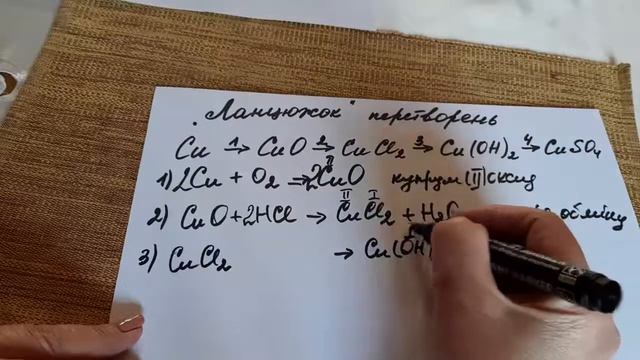 „Ланцюжок" перетворень
Cu 1→ CuO 2→ CuCl₂ 3→ Cu(OH)₂ 4→ CuSO₄
1) 2Cu + O₂ → 2CuO купрум(II)оксид
2) CuO + 2HCl → CuCl₂ + H₂ обміну
3) CuCl₂ → Cu(OH)